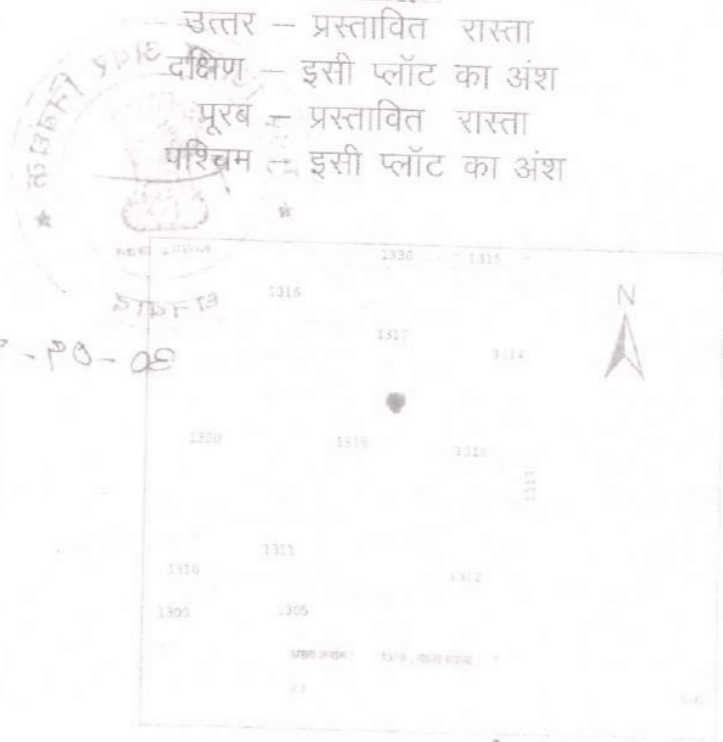 उत्तर – प्रस्तावित रास्ता
दक्षिण – इसी प्लॉट का अंश
पूरब – प्रस्तावित रास्ता
पश्चिम – इसी प्लॉट का अंश
1336 1315
1316
N
1317
1314
1320 1319 1318
1313
1311
1310 1312
1309 1305